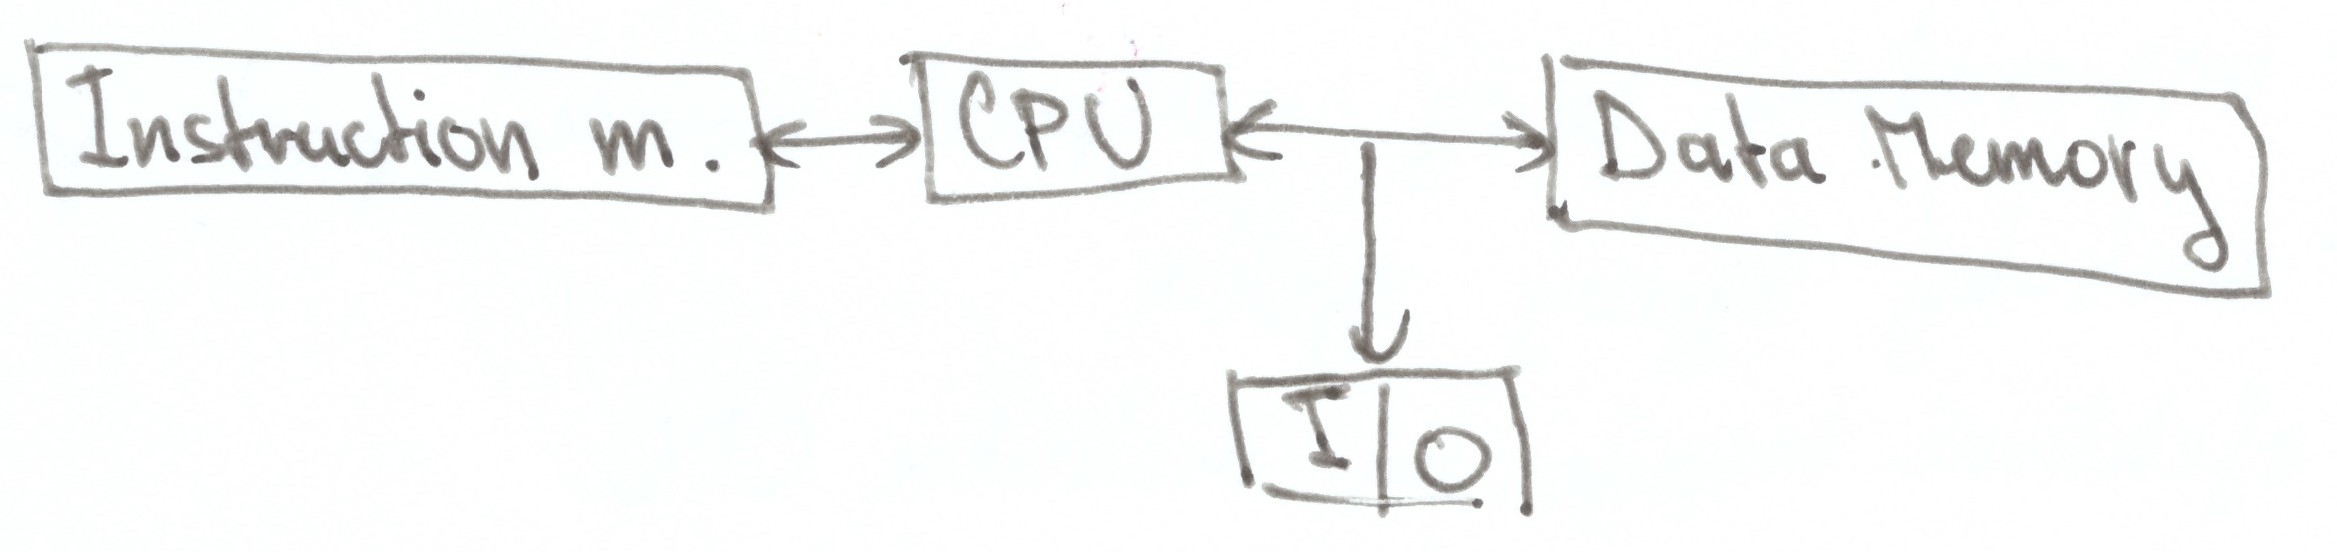 Instruction m.
CPU
Data Memory
I|O